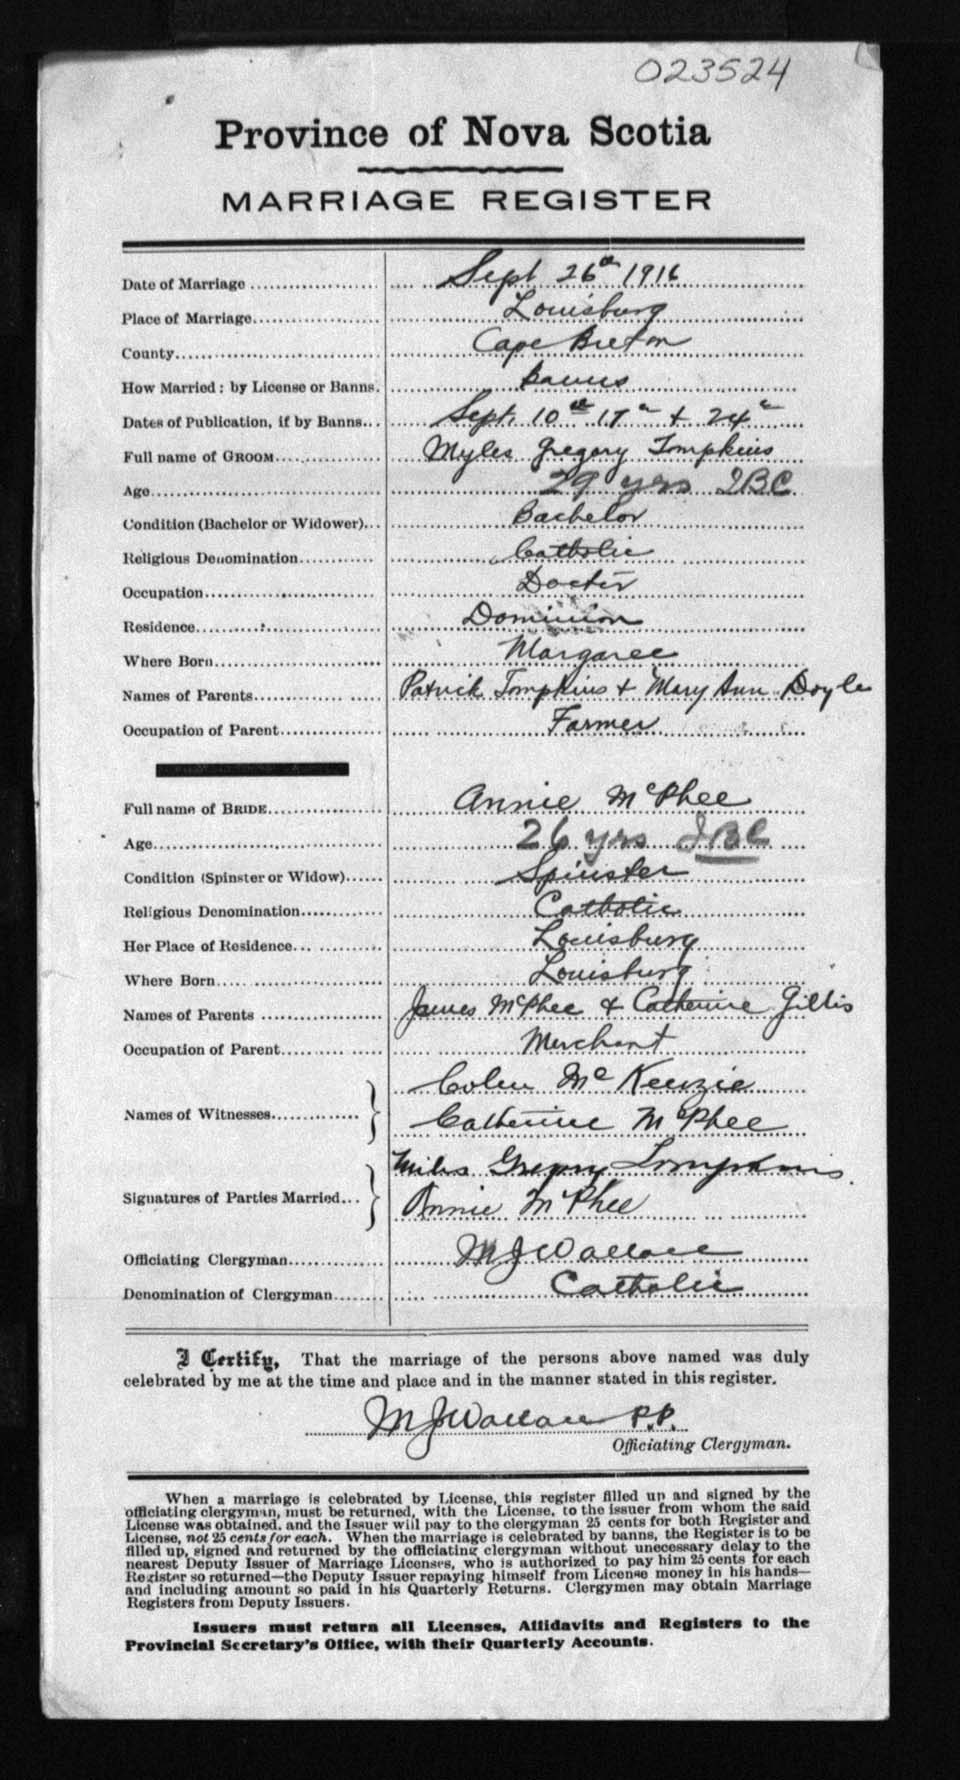 023524
Province of Nova Scotia
MARRIAGE REGISTER
Date of Marriage Sept 26th 1916
Place of Marriage Louisburg
County Cape Breton
How Married: by License or Banns. Banns
Dates of Publication, if by Banns Sept. 10th 17th + 24th
Full name of GROOM Myles Gregory Tompkins
Age 29 yrs JBC
Condition (Bachelor or Widower) Bachelor
Religious Denomination Catholic
Occupation Doctor
Residence Dominion
Where Born Margaree
Names of Parents Patrick Tompkins + Mary Ann Doyle
Occupation of Parent Farmer
Full name of BRIDE Annie McPhee
Age 26 yrs JBC
Condition (Spinster or Widow) Spinster
Religious Denomination Catholic
Her Place of Residence Louisburg
Where Born Louisburg
Names of Parents James McPhee + Catherine Gillis
Occupation of Parent Merchant
Names of Witnesses Colen McKenzie
Catherine McPhee
Signatures of Parties Married Miles Gregory Tompkins
Annie McPhee
Officiating Clergyman M J Wallace
Denomination of Clergyman Catholic
I Certify, That the marriage of the persons above named was duly
celebrated by me at the time and place and in the manner stated in this register.
M J Wallace P.P.
Officiating Clergyman.
When a marriage is celebrated by License, this register filled up and signed by the
officiating clergyman, must be returned, with the License, to the issuer from whom the said
License was obtained, and the Issuer will pay to the clergyman 25 cents for both Register and
License, not 25 cents for each. When the marriage is celebrated by banns, the Register is to be
filled up, signed and returned by the officiating clergyman without unecessary delay to the
nearest Deputy Issuer of Marriage Licenses, who is authorized to pay him 25 cents for each
Register so returned—the Deputy Issuer repaying himself from License money in his hands—
and including amount so paid in his Quarterly Returns. Clergymen may obtain Marriage
Registers from Deputy Issuers.
Issuers must return all Licenses, Affidavits and Registers to the
Provincial Secretary's Office, with their Quarterly Accounts.